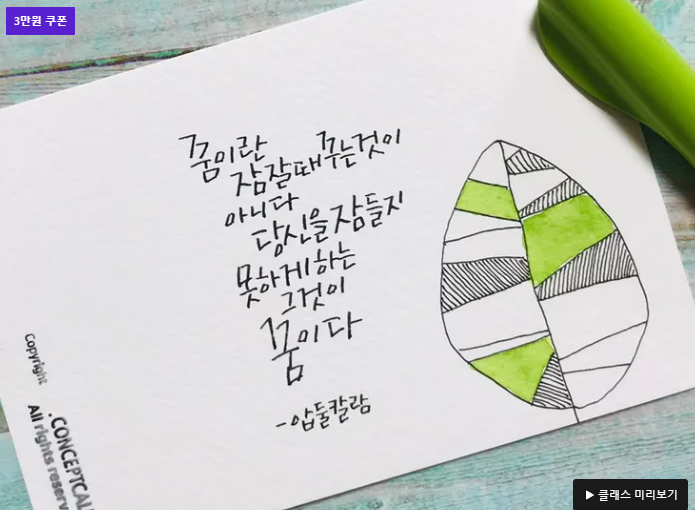 3만원 쿠폰
꿈이란
잠잘때 꾸는것이
아니다
당신을 잠들지
못하게 하는
그것이
꿈이다
-압둘칼람
Copyright
.CONCEPTCAL
All rights reserve
▶ 클래스 미리보기